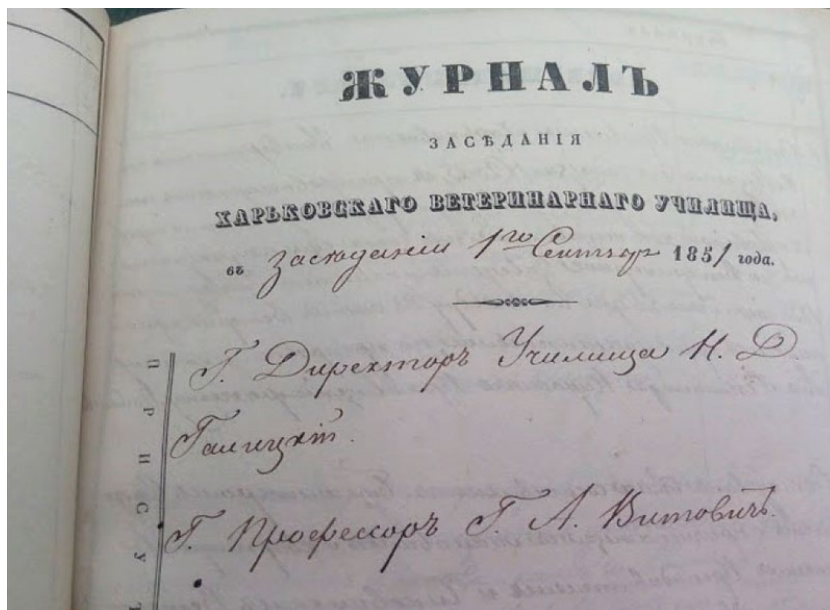 ЖУРНАЛЪ
ЗАСѢДАНІЯ
ХАРЬКОВСКАГО ВЕТЕРИНАРНАГО УЧИЛИЩА,
въ засѣданіи 1го Сентябр 1851 года.
Г. Директоръ Училища Н. Д.
Галицкій.
Г. Профессоръ Г. А. Витовичъ.
П Р И С У Т